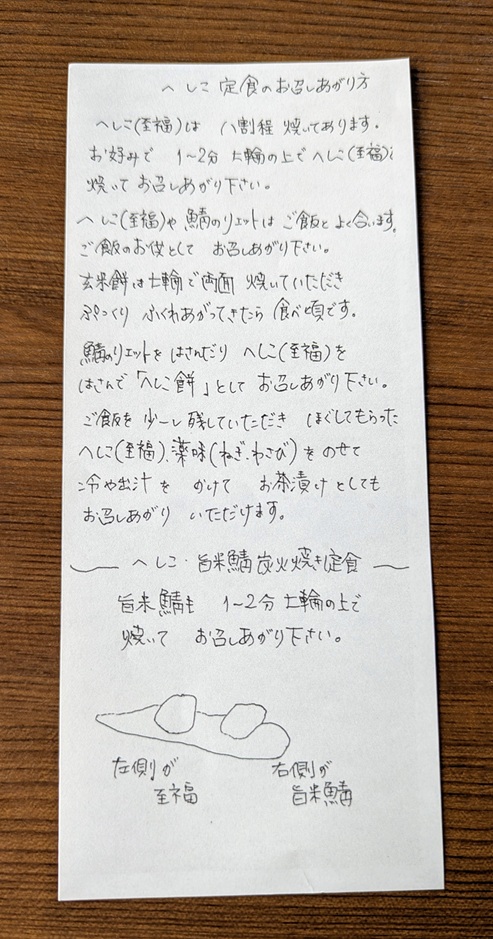 へしこ定食のお召しあがり方
へしこ(至福)は 八割程 焼いてあります。
お好みで 1~2分 七輪の上でへしこ(至福)を
焼いて お召しあがり下さい。
へしこ(至福)や 鯖のリエットは ご飯と よく合います。
ご飯のお供として お召しあがり下さい。
玄米餅は七輪で両面 焼いていただき
ぷっくり ふくれあがってきたら 食べ頃です。
鯖のリエットを はさんだり へしこ(至福)を
はさんで「へしこ餅」として お召しあがり下さい。
ご飯を 少ーし残していただき ほぐしてもらった
へしこ(至福)、薬味(ねぎ、わさび)を のせて
冷や出汁を かけて お茶漬けとしても
お召しあがり いただけます。
へしこ・旨米鯖炭火焼き定食
旨米鯖も 1~2分 七輪の上で
焼いて お召しあがり下さい。
左側が
至福
右側が
旨米鯖